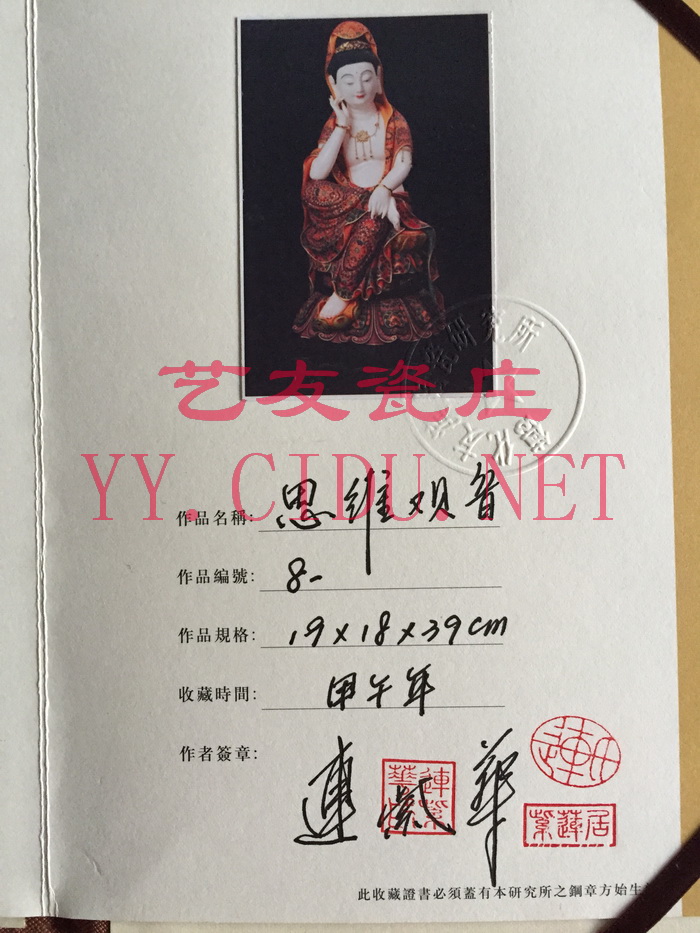 艺友瓷庄
YY.CIDU.NET
作品名稱: 思維观音
作品编號: 8-
作品規格: 19x18x39cm
收藏時間: 甲午年
作者簽章: 連紫華
連紫華
紫蓮居
此收藏證書必須蓋有本研究所之鋼章方始生